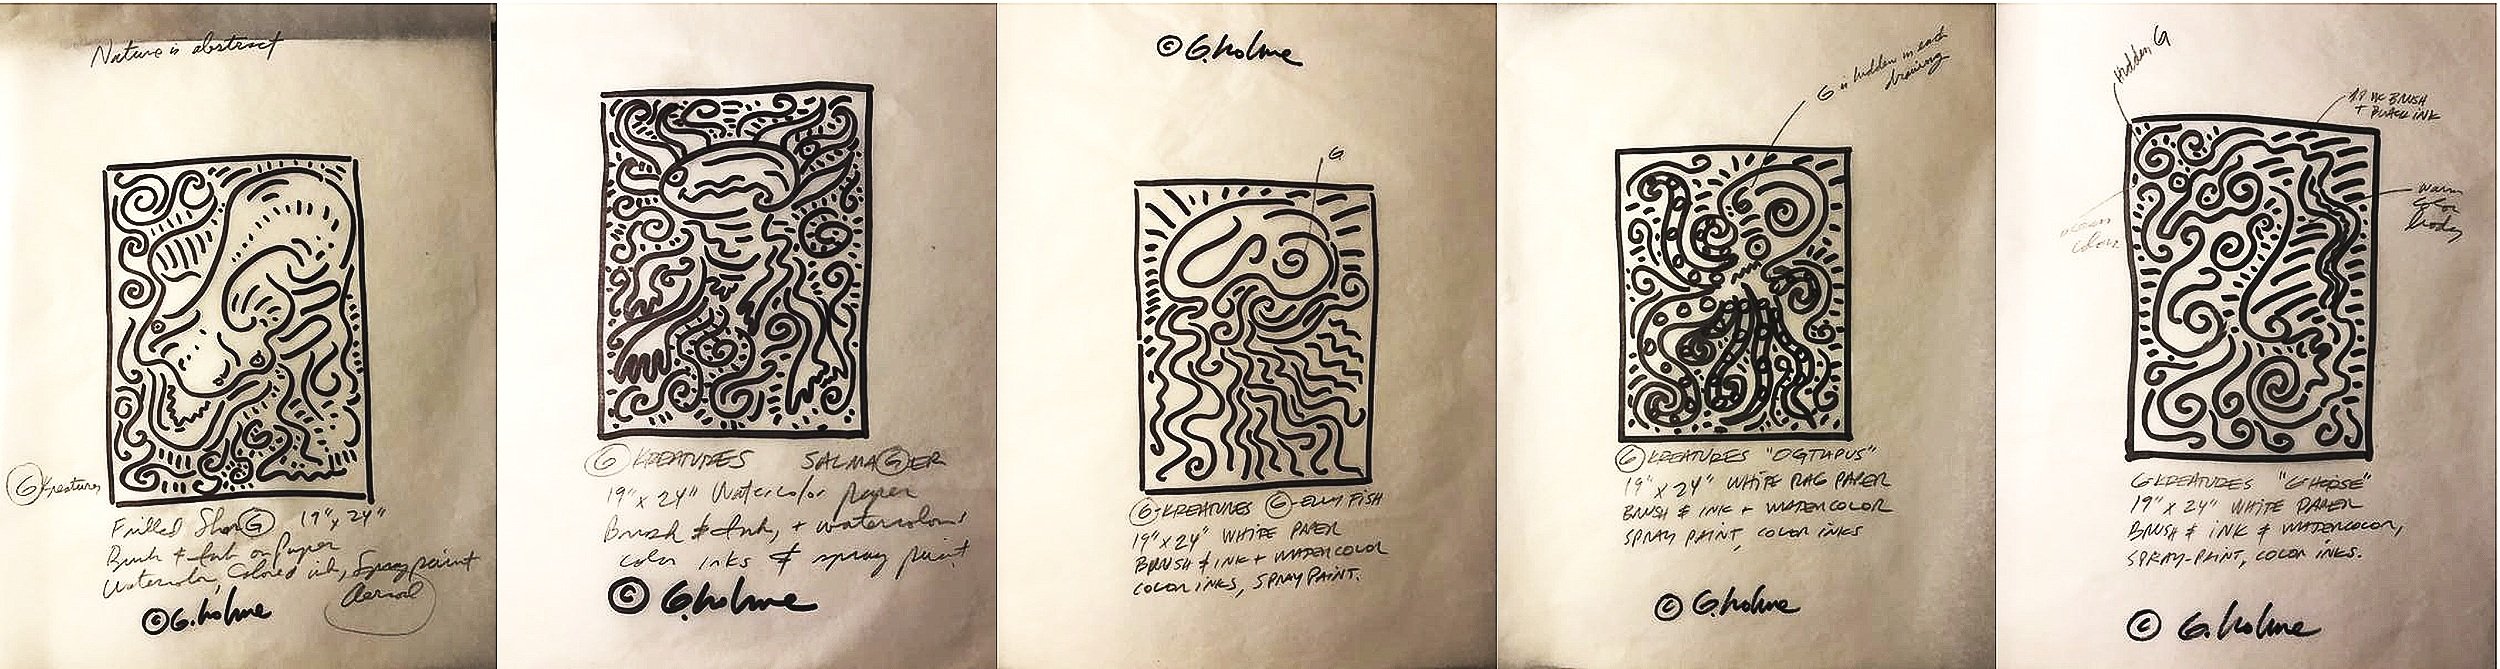 Nature is abstract
G Kreatures
Frilled SharG 19" x 24"
Brush & Ink on Paper
Watercolor, Colored ink, Spray paint
Aerosol
© G.holme
G KREATURES SALMAGER
19" x 24" Watercolor paper
Brush & Ink, + watercolour
color inks & spray paint
© G.holme
© G.holme
G
G-KREATURES G-ELLY FISH
19" x 24" WHITE PAPER
BRUSH & INK + WATERCOLOR
COLOR INKS, SPRAY PAINT.
G is hidden in each
drawing
G KREATURES "OGTAPUS"
19" x 24" WHITE RAG PAPER
BRUSH & INK + WATERCOLOR
SPRAY PAINT, COLOR INKS
© G.holme
Hidden G
BRUSH
+ BLACK INK
warm
color
body
ocean
colors
G KREATURES "GHORSE"
19" x 24" WHITE PAPER
BRUSH & INK & WATERCOLOR,
SPRAY-PAINT, COLOR INKS.
© G.holme